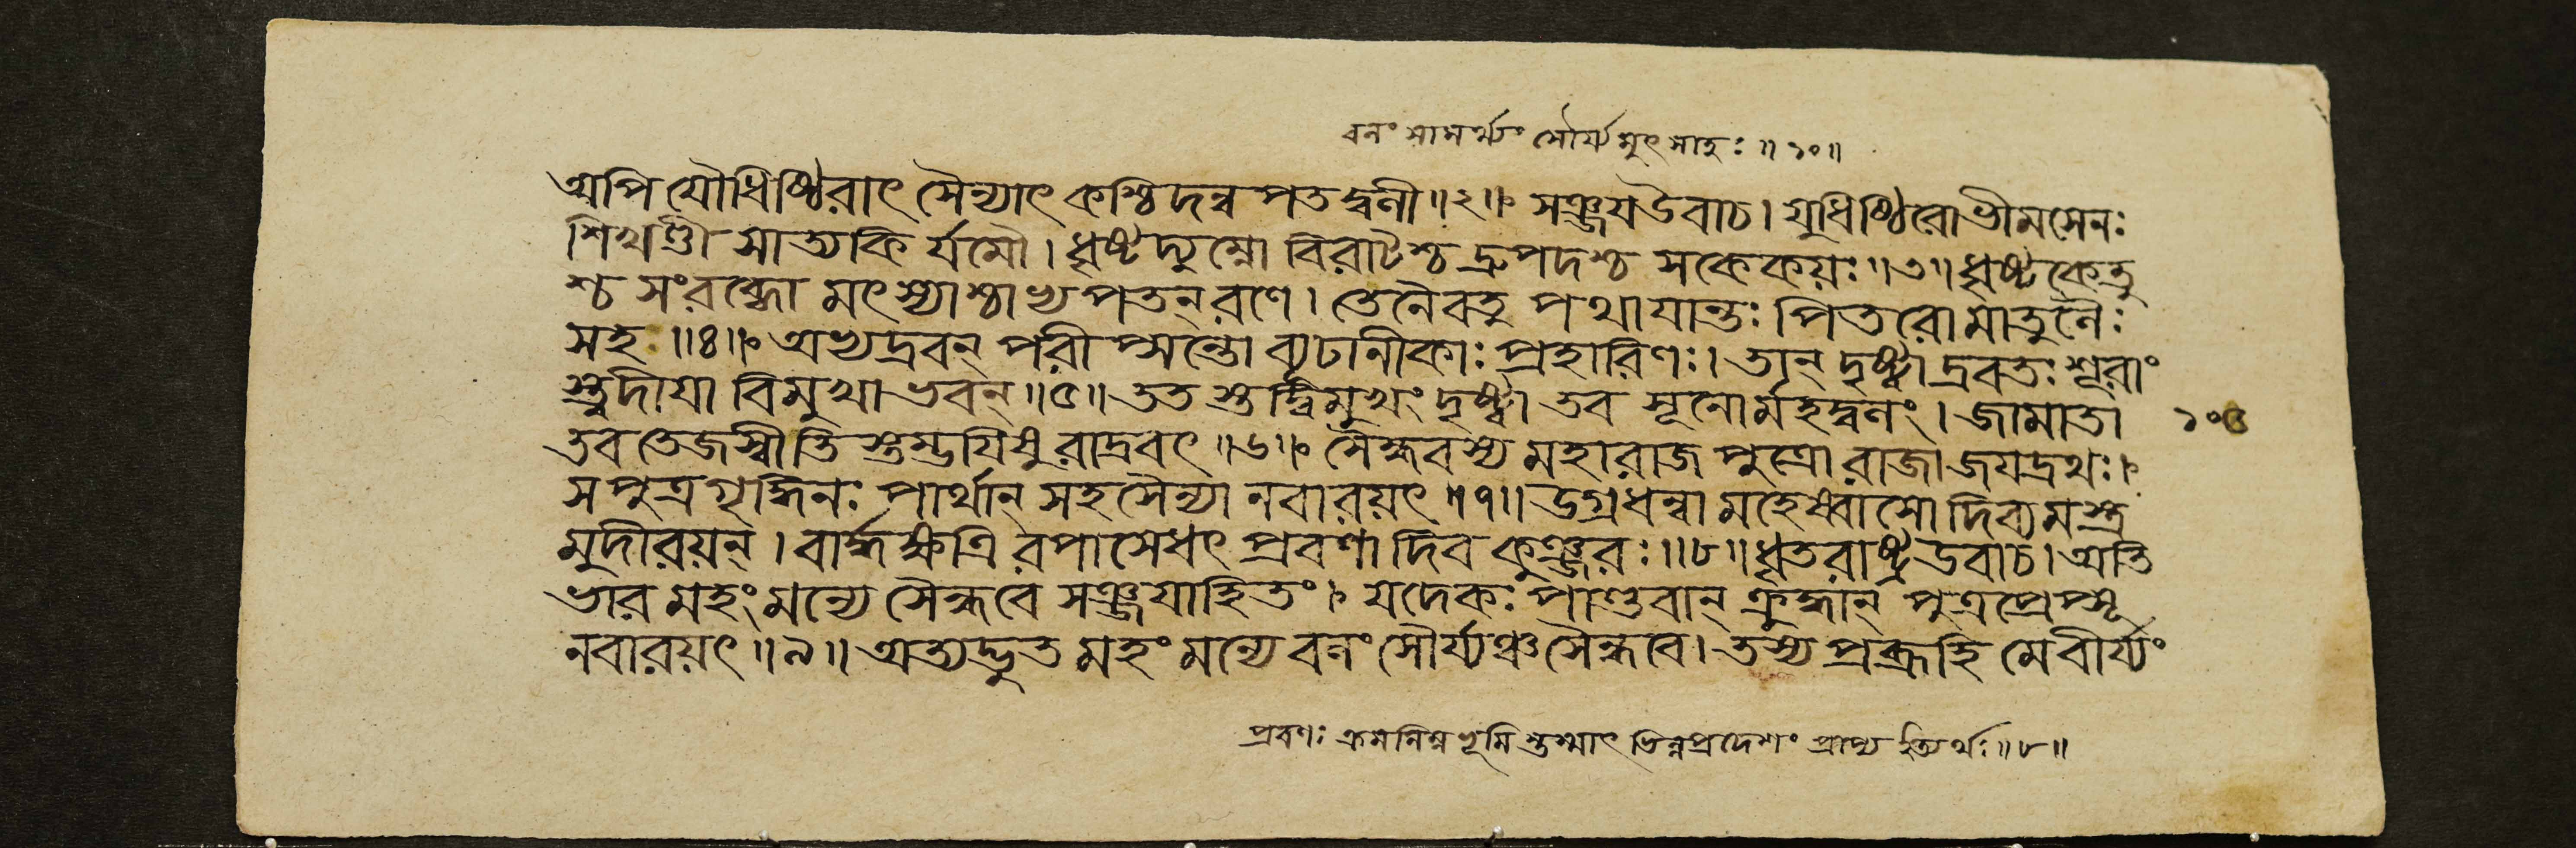 বলং সামর্থ্যং শৌর্য্যমুৎসাহঃ॥১০॥
অপি যৌধিষ্ঠিরাৎ সৈন্যাৎ কশ্চিদন্ব পতদ্বলী॥২॥ সঞ্জয়উবাচ। যুধিষ্ঠিরোভীমসেনঃ
শিখণ্ডী সাত্যকি র্যমৌ। ধৃষ্টদ্যুম্নো বিরাটশ্চ দ্রুপদশ্চ সকেকয়ঃ॥৩॥ ধৃষ্টকেতু
শ্চ সংরব্ধো মৎস্যাশ্চাভ্য পতন্ রণে। তেনৈবতু পথাযান্তঃ পিতরোমাতুলৈঃ
সহ॥৪॥ অভ্যদ্রবন্ পরীপ্সন্তো ব্যূঢানীকাঃ প্রহারিণঃ। তান্ দৃষ্ট্বা দ্রবতঃ শূরাং
স্ত্বদীয়া বিমুখাভবন্॥৫॥ তত স্তদ্বিমুখং দৃষ্ট্বা তব সূনোর্মহদ্বলং। জামাতা
তব তেজস্বী তিস্তম্ভয়িষু রাদ্রবৎ॥৬॥ সৈন্ধবস্য মহারাজ পুত্রো রাজা জয়দ্রথঃ।
স পুত্রগৃদ্ধিনঃ পার্থান্ সহসৈন্যা নবারয়ৎ॥৭॥ উগ্রধন্বা মহেষ্বাসো দিব্যমস্ত্র
মুদীরয়ন্। বার্দ্ধক্ষত্রি রপাসেধৎ প্রবণা দিব কুঞ্জরঃ॥৮॥ ধৃতরাষ্ট্রউবাচ। অতি
ভার মহং মন্যে সৈন্ধবে সঞ্জয়াহিতং। যদেকঃ পাণ্ডবান্ ক্রুদ্ধান্ পুত্রপ্রেপ্সূ
নবারয়ৎ॥৯॥ অত্যদ্ভুত মহং মন্যে বলং শৌর্য্যঞ্চ সৈন্ধবে। তস্য প্রব্রূহি মেবীর্য্যং
প্রবণঃ ক্রমনিম্নভূমি স্তস্মাৎ ভিন্নপ্রদেশং প্রাপ্য ইত্যর্থঃ॥৮॥